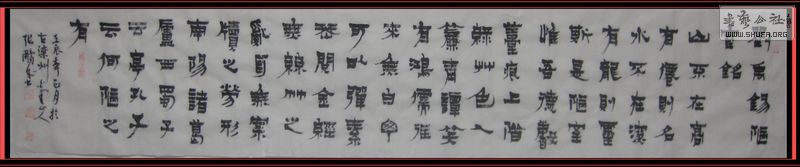 劉禹錫陋
室銘
山不在高
有僊則名
水不在深
有龍則靈
斯是陋室
惟吾德馨
苔痕上階
綠草色入
簾青談笑
有鴻儒往
來無白丁
可以彈素
琴閱金經
無絲竹之
亂耳無案
牘之勞形
南陽諸葛
廬西蜀子
云亭孔子
云何陋之
有
壬辰年月於
古達州
书艺公社
WWW.SHUFA.ORG